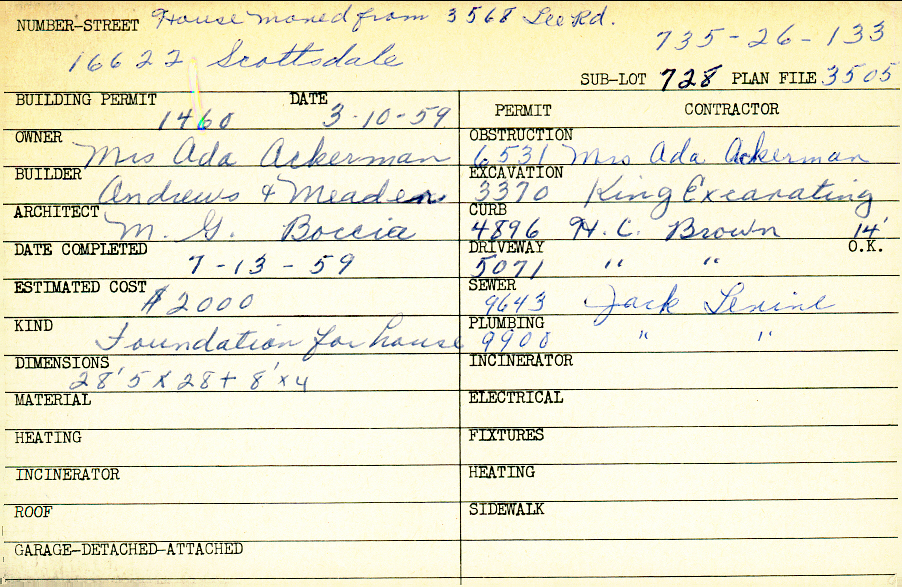 NUMBER-STREET House moved from 3568 Lee Rd.
735-26-133
16622 Scottsdale
SUB-LOT 728 PLAN FILE 3505
BUILDING PERMIT DATE
1460 3-10-59
PERMIT CONTRACTOR
OWNER
Mrs Ada Ackerman
OBSTRUCTION
6531 Mrs Ada Ackerman
BUILDER
Andrews & Meaden
EXCAVATION
3370 King Excavating
ARCHITECT
M. G. Boccia
CURB
4896 H. C. Brown 14'
DATE COMPLETED
7-13-59
DRIVEWAY O.K.
5071 " "
ESTIMATED COST
$2000
SEWER
9643 Jack Levine
KIND
Foundation for house
PLUMBING
9900 " "
DIMENSIONS
28'5 x 28 + 8' x 4
INCINERATOR
MATERIAL
ELECTRICAL
HEATING
FIXTURES
INCINERATOR
HEATING
ROOF
SIDEWALK
GARAGE-DETACHED-ATTACHED